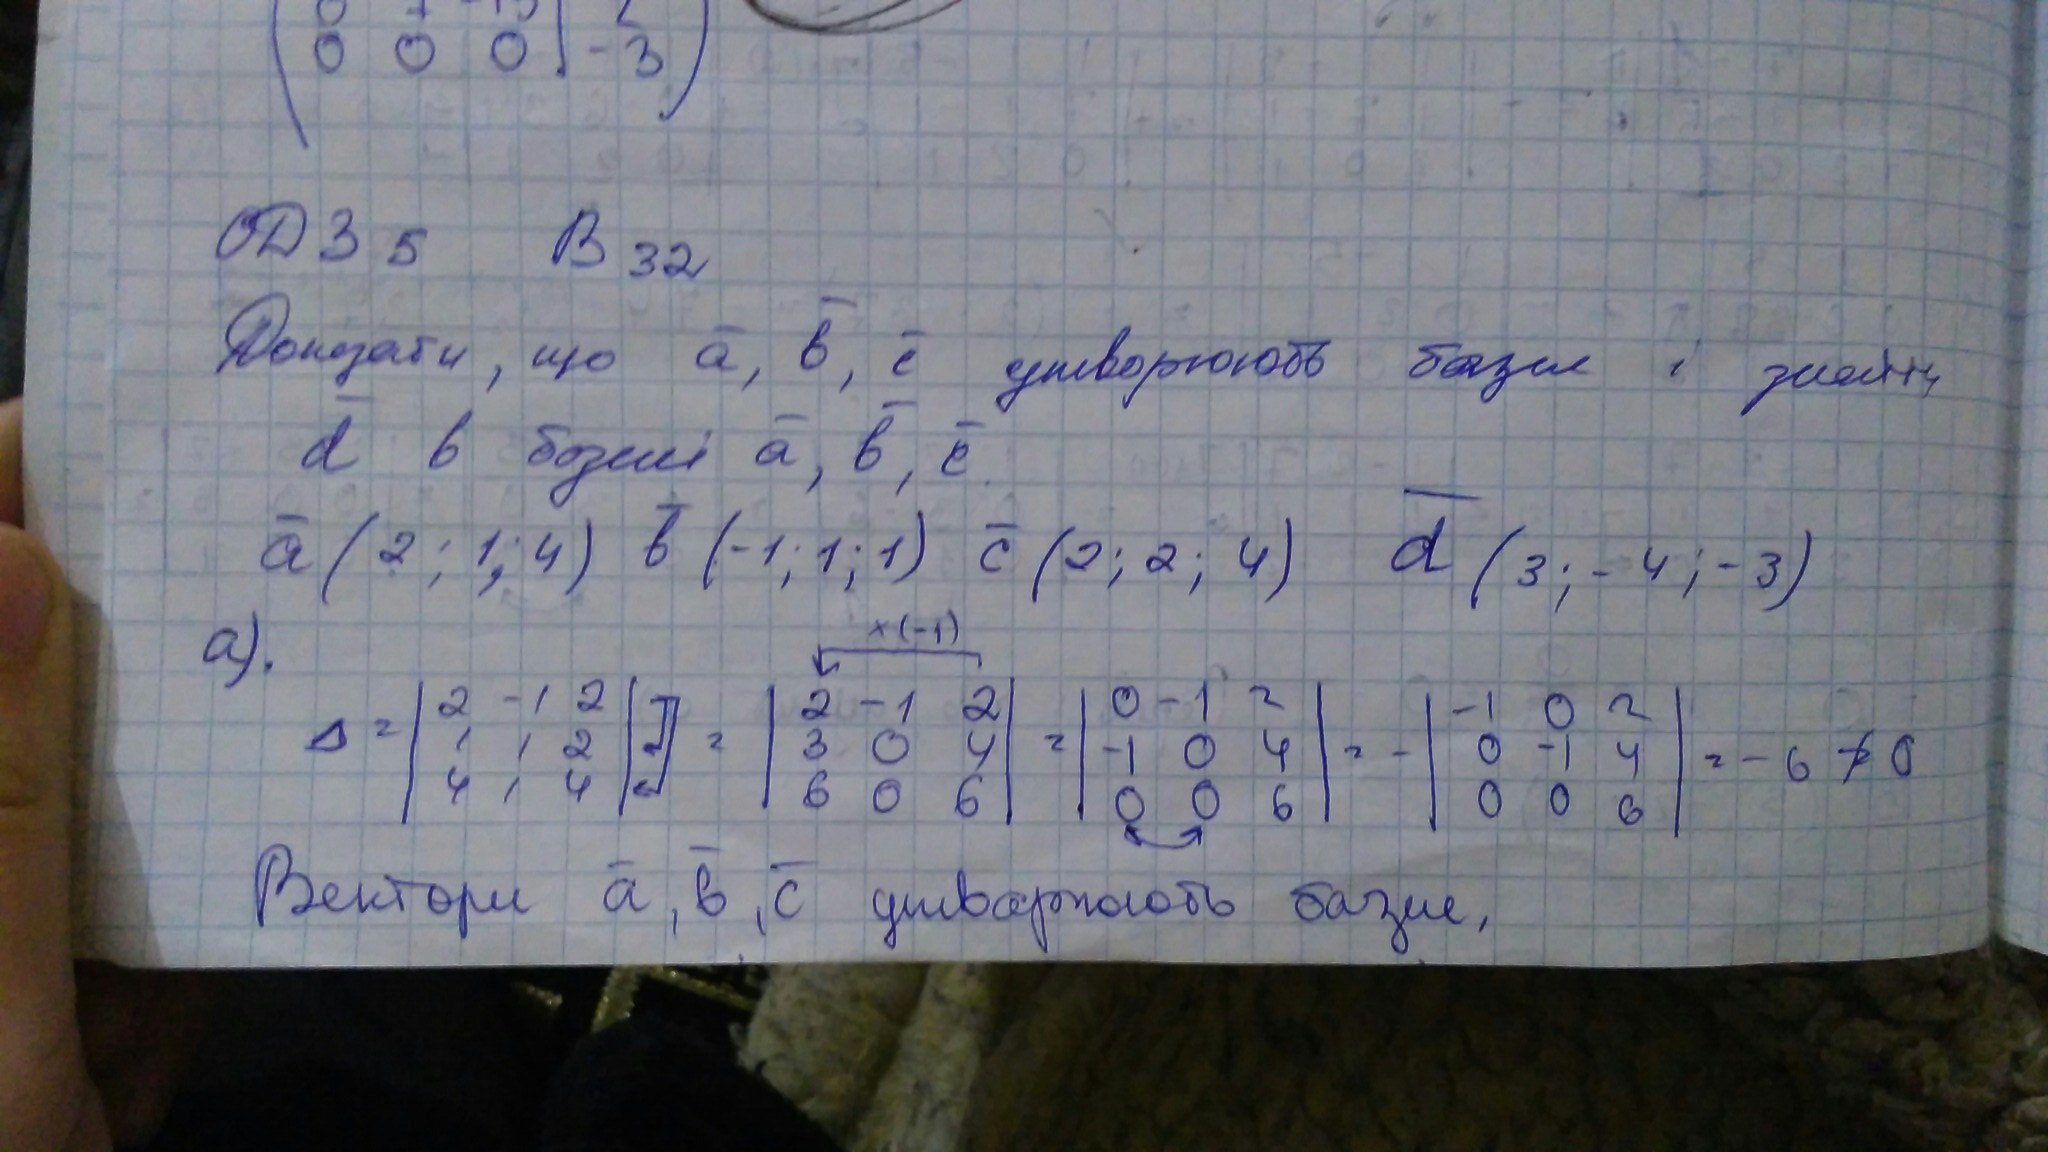 0 0 0 | -3
ОДЗ 5 В 32
Доказати, що a̅, b̅, c̅ утворюють базис і знайти
d̅ в базисі a̅, b̅, c̅
a̅ (2; 1; 4) b̅ (-1; 1; 1) c̅ (2; 2; 4) d̅ (3; -4; -3)
×(-1)
а).
Δ = | 2 -1 2 | = | 2 -1 2 | = | 0 -1 2 | = - | -1 0 2 | = -6 ≠ 0
| 1 1 2 | | 3 0 4 | | -1 0 4 | | 0 -1 4 |
| 4 1 4 | | 6 0 6 | | 0 0 6 | | 0 0 6 |
Вектори a̅, b̅, c̅ утворюють базис,